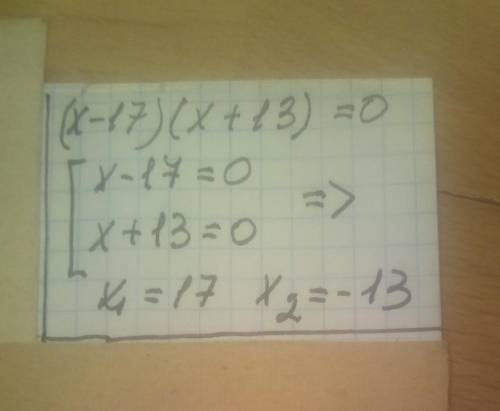 (x-17)(x+13) =0
[ x-17=0
x+13=0 =>
x₁=17 x₂=-13